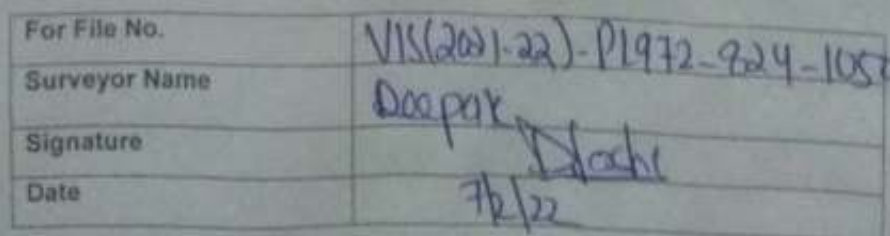 For File No. VIS(2021-22)-PL972-824-105
Surveyor Name Deepak
Signature
Date 7/2/22